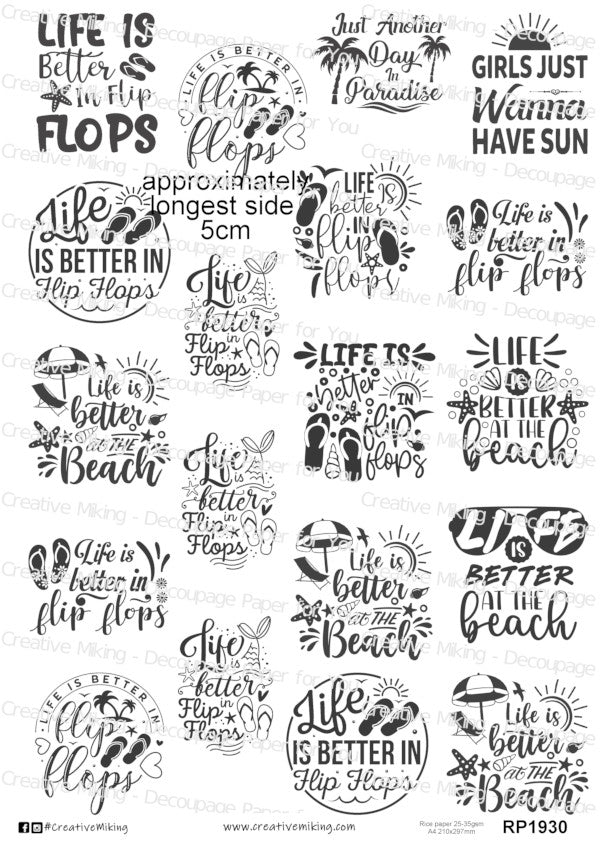 LIFE IS
Better
In Flip
FLOPS
LIFE IS BETTER IN
flip
flops
Just Another
Day
In
Paradise
GIRLS JUST
Wanna
HAVE SUN
approximately
longest side
5cm
Life
IS BETTER IN
Flip Flop's
Life
is
better
Flip in
Flops
LIFE
IS
better
IN
flip
flops
Life is
better in
flip flops
Life is
better
at THE
Beach
LIFE IS
better
IN
flip
flops
LIFE
IS
BETTER
AT THE
beach
Life
is
better
Flip in
Flops
Life is
better in
flip flops
Life is
better
at THE
Beach
LIFE
IS
BETTER
AT THE
beach
Life
is
better
Flip in
Flops
LIFE IS BETTER IN
flip
flops
Life
IS BETTER IN
Flip Flop's
Life is
better
at THE
Beach
Creative Miking - Decoupage Paper for You
#CreativeMiking
www.creativemiking.com
Rice paper 25-35gsm
A4 210x297mm
RP1930